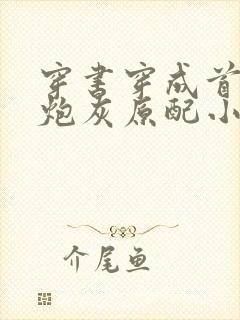 穿书穿成首
炮灰原配小
介尾鱼